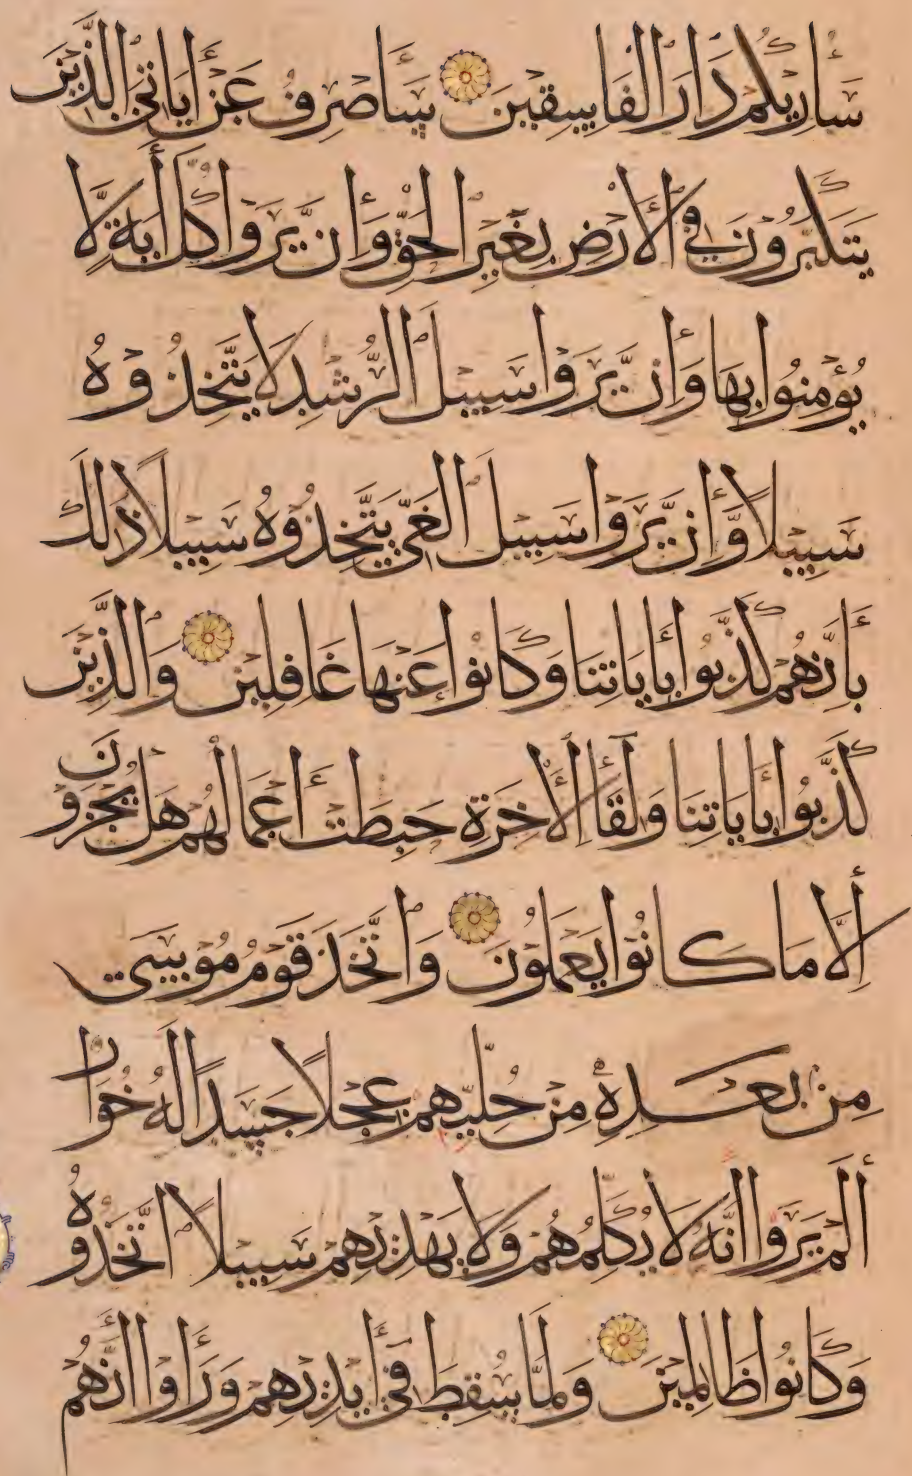 سَأُرِيكُمْ دَارَ الْفَاسِقِينَ سَأَصْرِفُ عَنْ أَيَاتِيَ الَّذِينَ
يَتَكَبَّرُونَ فِي الْأَرْضِ بِغَيْرِ الْحَقِّ وَأِنْ يَّرَوْا كُلَّ أَيَةٍ لَّا
يُؤْمِنُوا بِهَا وَأِنْ يَّرَوْا سَبِيلَ الرُّشْدِ لَا يَتَّخِذُوْهُ
سَبِيلًا وَّأِنْ يَّرَوْا سَبِيلَ الْغَيِّ يَتَّخِذُوْهُ سَبِيلًا ذَٰلِكَ
بِأَنَّهُمْ كَذَّبُوا بِأَيَاتِنَا وَكَانُوا عَنْهَا غَافِلِينَ وَالَّذِينَ
كَذَّبُوا بِأَيَاتِنَا وَلِقَآءِ الْأَخِرَةِ حَبِطَتْ أَعْمَالُهُمْ هَلْ يُجْزَوْنَ
أِلَّا مَا كَانُوا يَعْمَلُوْنَ وَاتَّخَذَ قَوْمُ مُوْسَى
مِنْ بَعْدِهِ مِنْ حُلِيِّهِمْ عِجْلًا جَسَدًا لَهُ خُوَارٌ
أَلَمْ يَرَوْا أَنَّهُ لَا يُكَلِّمُهُمْ وَلَا يَهْدِيهِمْ سَبِيلًا اتَّخَذُوْهُ
وَكَانُوا ظَالِمِيْنَ وَلَمَّا سُقِطَ فِيٓ أَيْدِيهِمْ وَرَأَوْا أَنَّهُمْ